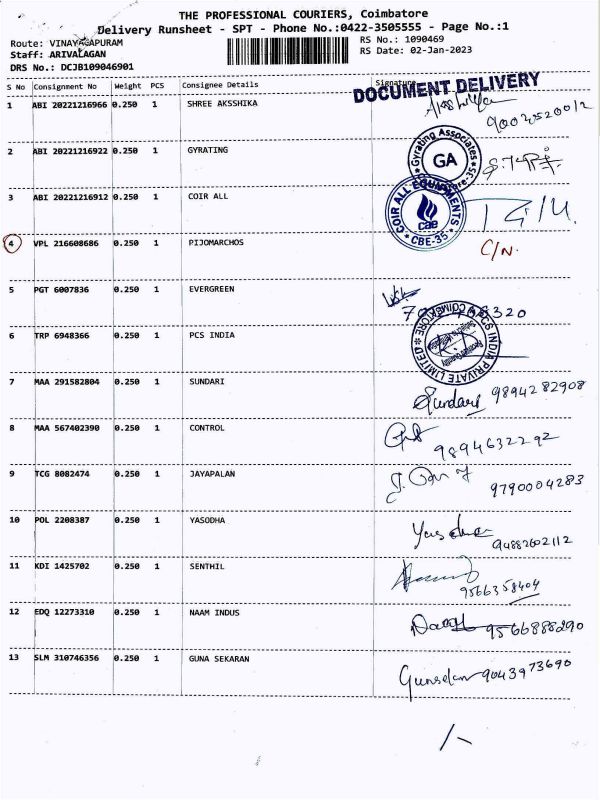 THE PROFESSIONAL COURIERS, Coimbatore
Delivery Runsheet - SPT - Phone No.:0422-3505555 - Page No.:1
Route: VINAYAGAPURAM
RS No.: 1090469
Staff: ARIVALAGAN
RS Date: 02-Jan-2023
DRS No.: DCJB109046901
S No Consignment No Weight PCS Consignee Details Signature
DOCUMENT DELIVERY
1 ABI 20221216966 0.250 1 SHREE AKSSHIKA
2 ABI 20221216922 0.250 1 GYRATING
Gyrating Associates GA
3 ABI 20221216912 0.250 1 COIR ALL
COIR ALL EQUIPMENTS cae * CBE-35 *
4 VPL 216608686 0.250 1 PIJOMARCHOS C/N.
5 PGT 6007836 0.250 1 EVERGREEN
6 TRP 6948366 0.250 1 PCS INDIA
PCS INDIA PRIVATE LIMITED * COIMBATORE *
7 MAA 291582804 0.250 1 SUNDARI Sundari 9894282908
8 MAA 567402390 0.250 1 CONTROL 9894632292
9 TCG 8082474 0.250 1 JAYAPALAN 9790004283
10 POL 2208387 0.250 1 YASODHA 94882602112
11 KDI 1425702 0.250 1 SENTHIL 9566358404
12 EDQ 12273310 0.250 1 NAAM INDUS 9566888290
13 SLM 310746356 0.250 1 GUNA SEKARAN 9043973690